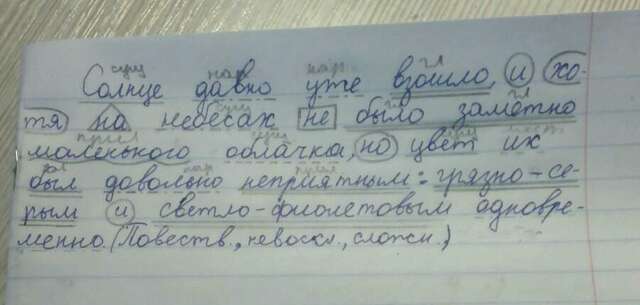 сущ нар нар гл
Солнце давно уже взошло, и хо-
сущ гл
тя на небесах не было заметно
прил сущ сущ мест.
маленького облачка, но цвет их
гл нар прил
был довольно неприятным: грязно-се-
рым и светло-фиолетовым одновре-
менно. (Повеств., невоскл., сложн.)